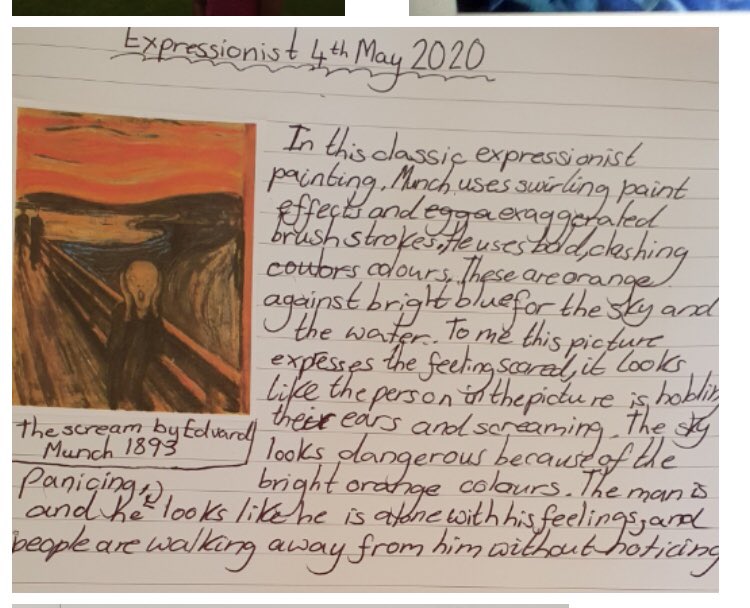 Expressionist 4th May 2020
In this classic expressionist
painting, Munch uses swirling paint
effects and egga exaggerated
brush strokes, He uses bold, clashing
coulors colours. These are orange
against bright blue for the sky and
the water. To me this picture
expesses the feeling scared, it looks
like the person in the picture is hobling
their ears and screaming. The sky
looks dangerous because of the
bright orange colours. The man is
The scream by Edvard
Munch 1893
Panicing,
and he looks like he is alone with his feelings, and
people are walking away from him without noticing